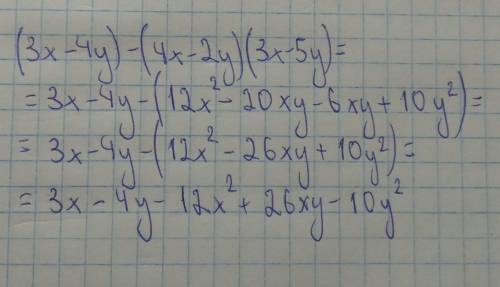 (3x-4y)-(4x-2y)(3x-5y)=
=3x-4y-(12x²-20xy-6xy+10y²)=
=3x-4y-(12x²-26xy+10y²)=
=3x-4y-12x²+26xy-10y²